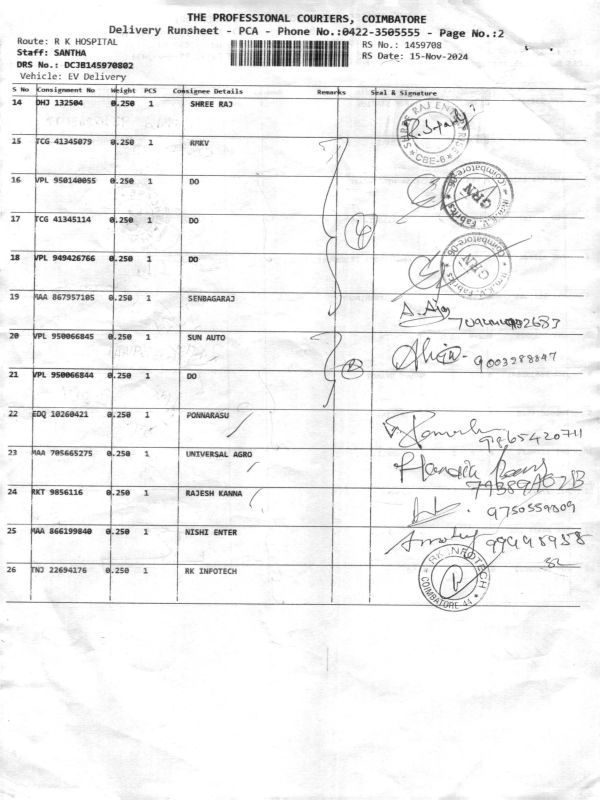 THE PROFESSIONAL COURIERS, COIMBATORE
Delivery Runsheet - PCA - Phone No.:0422-3505555 - Page No.:2
Route: R K HOSPITAL RS No.: 1459708
Staff: SANTHA RS Date: 15-Nov-2024
DRS No.: DCJB145970802
Vehicle: EV Delivery
S No Consignment No Weight PCS Consignee Details Remarks Seal & Signature
14 DHJ 132504 0.250 1 SHREE RAJ
15 TCG 41345079 0.250 1 RMKV
CBE-6
16 VPL 950140055 0.250 1 DO
GRN
17 TCG 41345114 0.250 1 DO
4
18 VPL 949426766 0.250 1 DO
GRN
19 MAA 867957105 0.250 1 SENBAGARAJ
20 VPL 950066845 0.250 1 SUN AUTO
9003288847
21 VPL 950066844 0.250 1 DO
22 EDQ 10260421 0.250 1 PONNARASU
9865420711
23 MAA 705665275 0.250 1 UNIVERSAL AGRO
24 RKT 9856116 0.250 1 RAJESH KANNA
9750559809
25 MAA 866199840 0.250 1 NISHI ENTER
26 TNJ 22694176 0.250 1 RK INFOTECH
RK INFOTECH
COIMBATORE-44